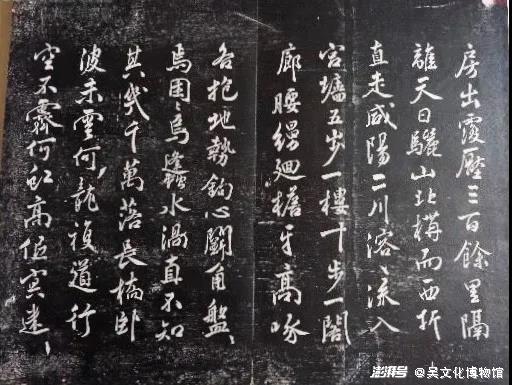 房出覆壓三百餘里隔
離天日驪山北構而西折
直走咸陽二川溶〻流入
宮墻五步一樓十步一閣
廊腰縵廻檐牙高啄
各抱地勢鈎心鬪角盤〻
焉囷〻焉蠭水渦直不知
其幾千萬落長橋卧
波未雲何龍複道行
空不霽何虹高低冥迷〻
澎湃号 @吴文化博物馆